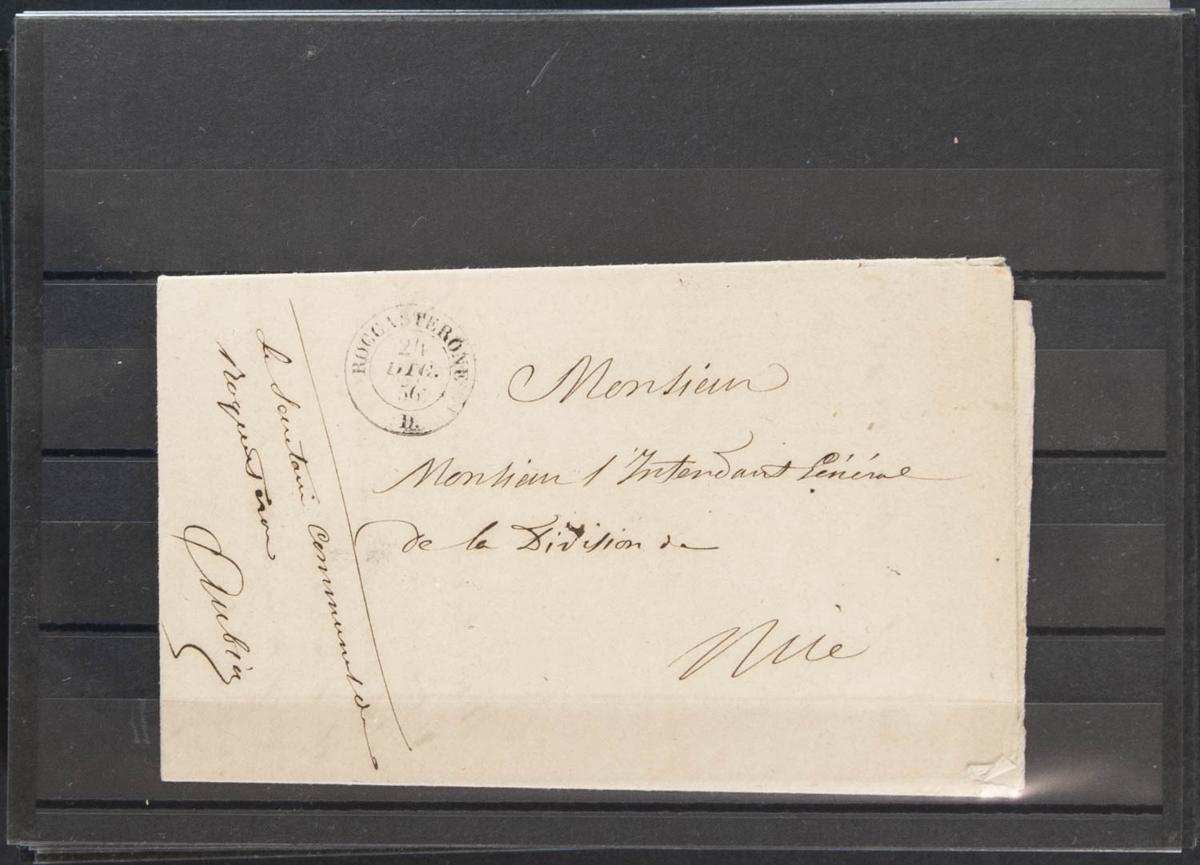 ROCCASTERONE
24
DIC.
56
D.
Monsieur
Monsieur l'Intendant Général
de la Division de
Nice
Le Secrétaire Communal de
Roquesteron
Aubin